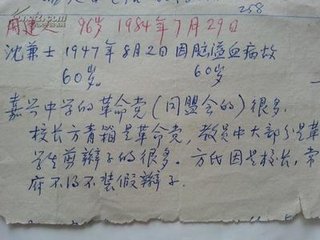 258
周建人 96岁 1984年7月29日
沈兼士 1947年8月2日因脑溢血病故
60岁。 60岁
嘉兴中学的革命党(同盟会的)很多.
校长方青箱是革命党，教员中大部分是革
学生剪辫子的很多. 方氏因是校长，常
府不得不装假辫子.